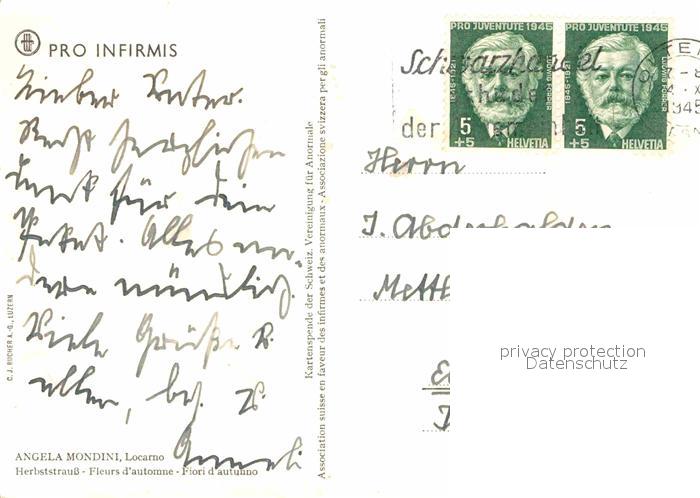 PRO INFIRMIS
Lieber Vater.
Recht herzlichen
Dank für Dein
Paket. Alles an-
dere mündlich.
Viele Grüße v.
allen, bes. v.
Anneli
ANGELA MONDINI, Locarno
Herbststrauß - Fleurs d'automne - Fiori d'autunno
C. J. BUCHER A.-G., LUZERN
Kartenspende der Schweiz. Vereinigung für Anormale
Association suisse en faveur des infirmes et des anormaux - Associazione svizzera per gli anormali
PRO JUVENTUTE 1945 PRO JUVENTUTE 1945
1845-1921 LUDWIG FORRER 1845-1921 LUDWIG FORRER
5 +5 HELVETIA 5 +5 HELVETIA
Schwarzhandel
der
1945
Herrn
J. Abderhalden
Mettl
privacy protection
Datenschutz